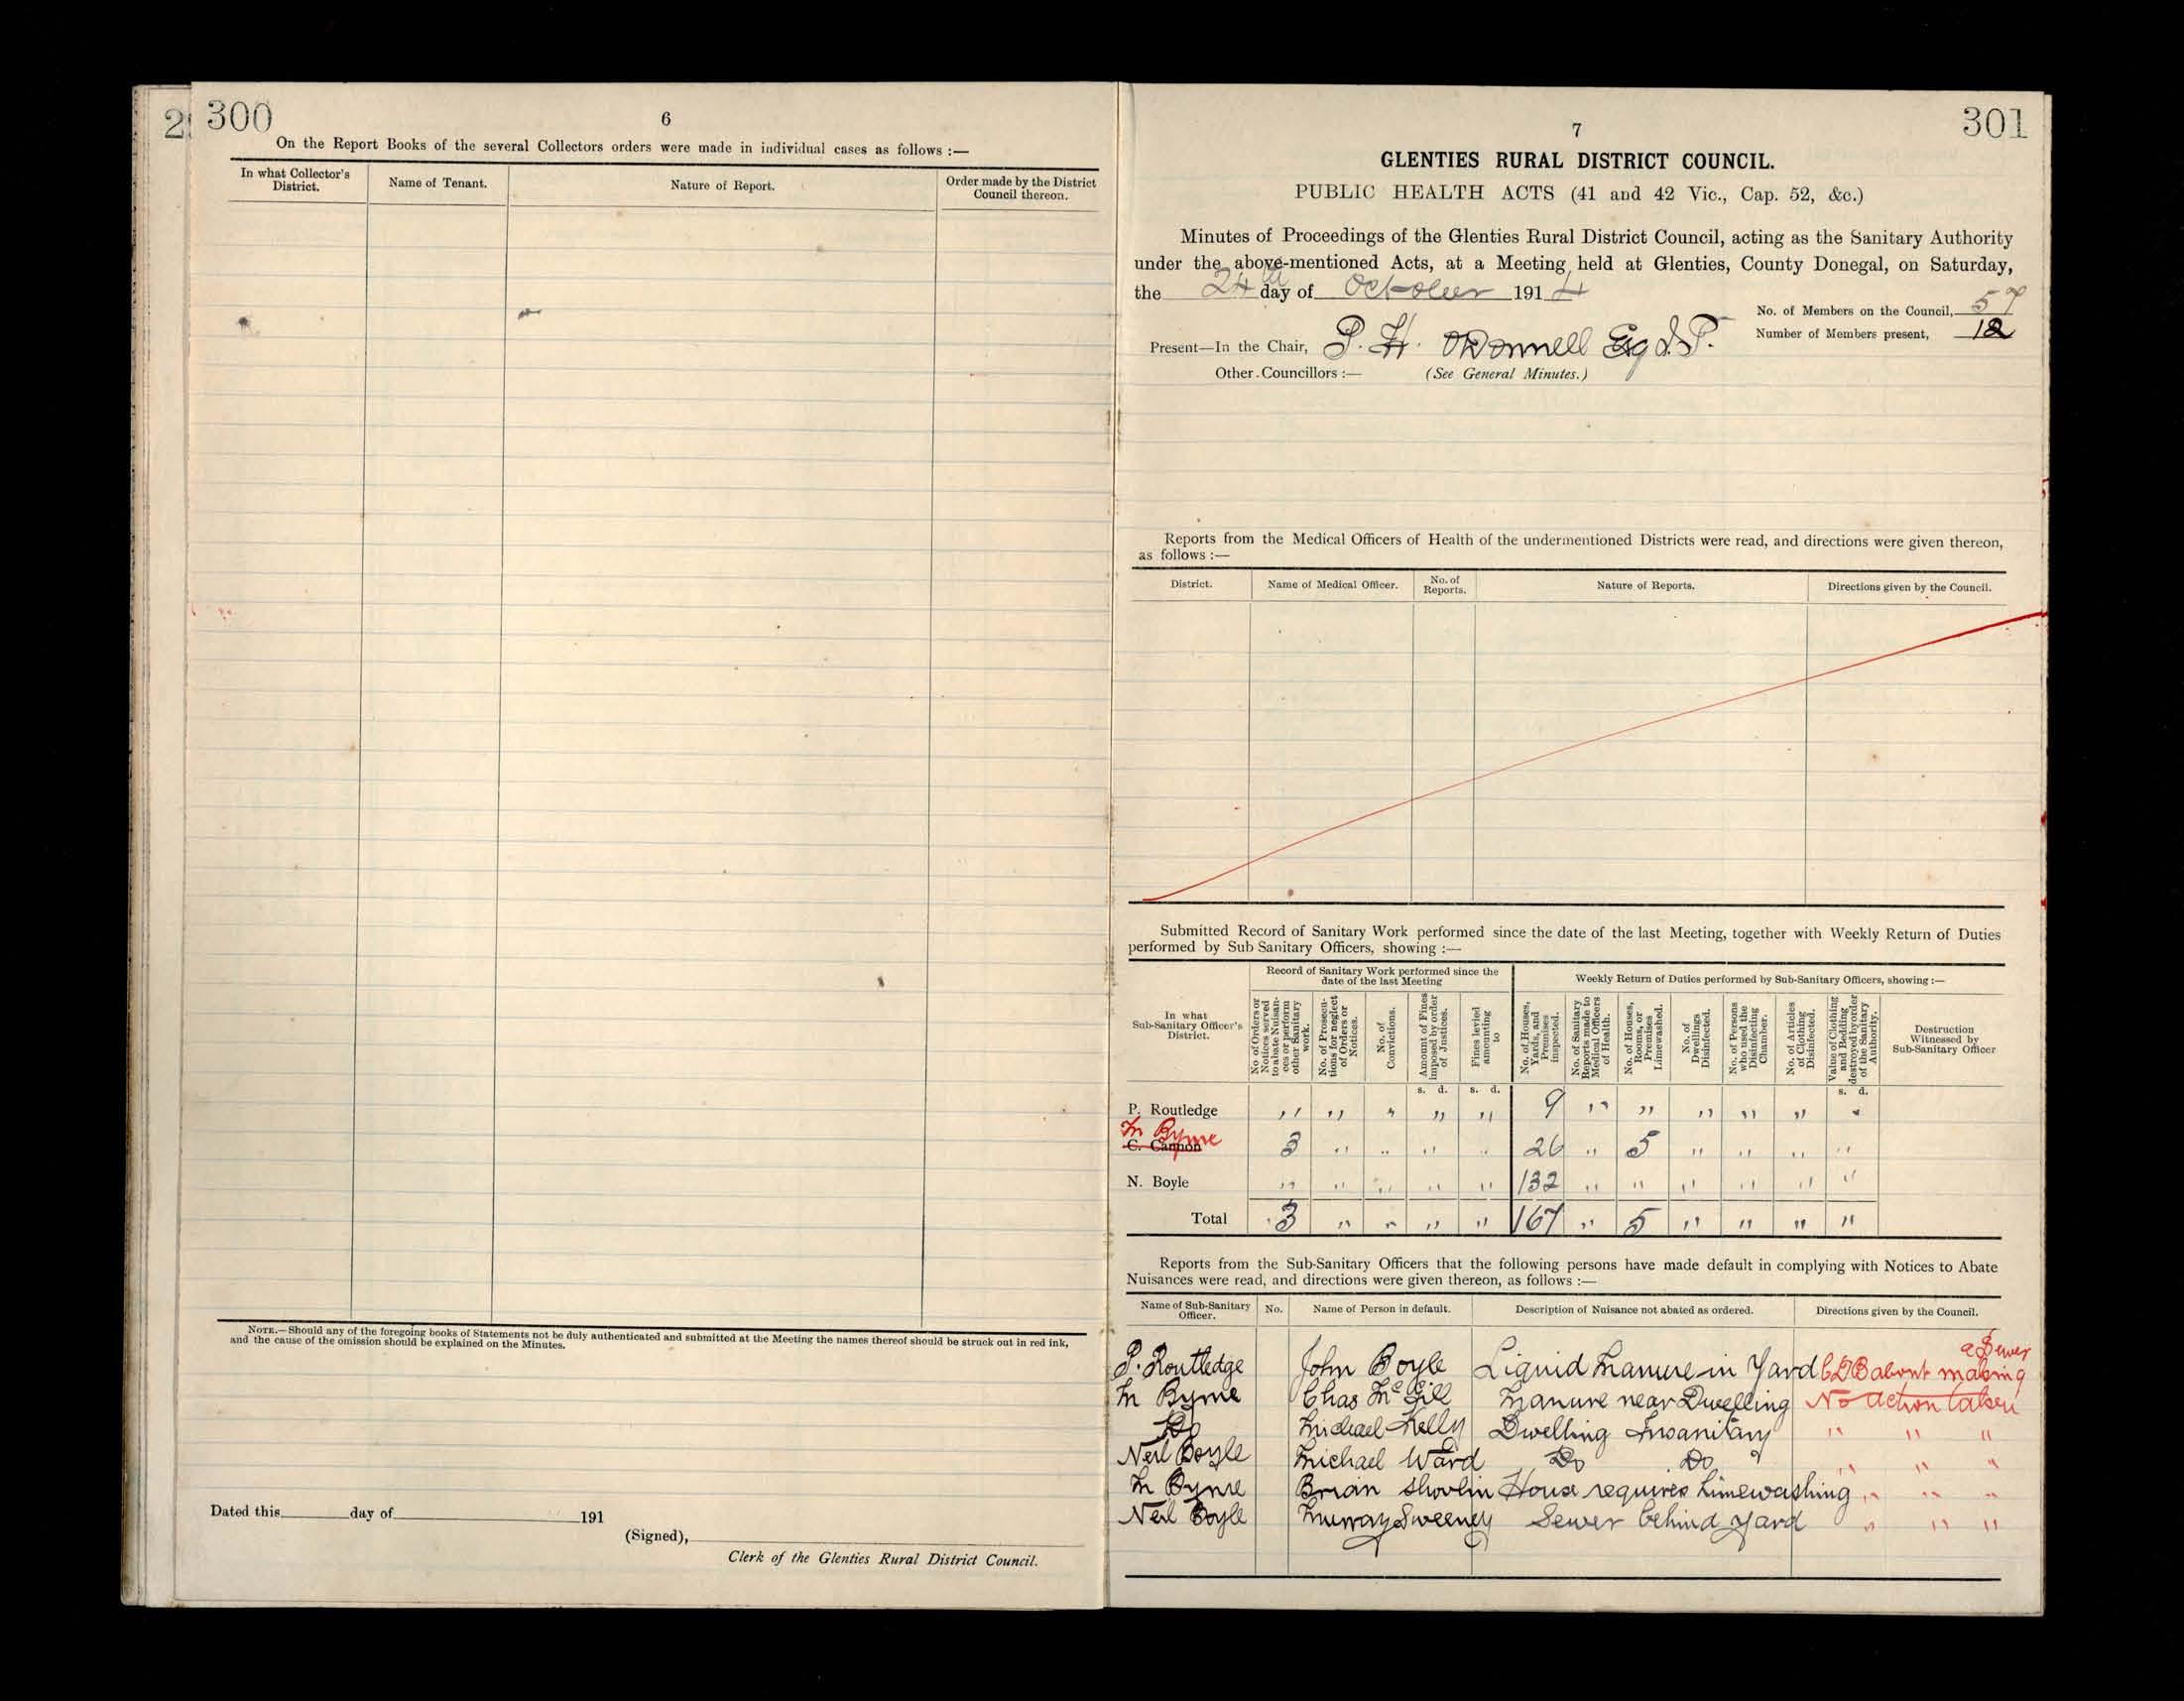 2
300
6
On the Report Books of the several Collectors orders were made in individual cases as follows :—
In what Collector's District.
Name of Tenant.
Nature of Report.
Order made by the District Council thereon.
NOTE.—Should any of the foregoing books of Statements not be duly authenticated and submitted at the Meeting the names thereof should be struck out in red ink,
and the cause of the omission should be explained on the Minutes.
Dated this day of 191
(Signed),
Clerk of the Glenties Rural District Council.
301
7
GLENTIES RURAL DISTRICT COUNCIL.
PUBLIC HEALTH ACTS (41 and 42 Vic., Cap. 52, &c.)
Minutes of Proceedings of the Glenties Rural District Council, acting as the Sanitary Authority
under the above-mentioned Acts, at a Meeting held at Glenties, County Donegal, on Saturday,
the 24th day of October 1914
No. of Members on the Council, 57
Number of Members present, 12
Present—In the Chair, P. H. O'Donnell Esq J.P.
Other Councillors :— (See General Minutes.)
Reports from the Medical Officers of Health of the undermentioned Districts were read, and directions were given thereon,
as follows :—
District.
Name of Medical Officer.
No. of Reports.
Nature of Reports.
Directions given by the Council.
Submitted Record of Sanitary Work performed since the date of the last Meeting, together with Weekly Return of Duties
performed by Sub Sanitary Officers, showing :—
In what Sub-Sanitary Officer's District.
Record of Sanitary Work performed since the date of the last Meeting
Weekly Return of Duties performed by Sub-Sanitary Officers, showing :—
No of Orders or Notices served to abate Nuisances or perform other Sanitary work.
No. of Prosecutions for neglect of Orders or Notices.
No. of Convictions.
Amount of Fines imposed by order of Justices.
Fines levied amounting to
No. of Houses, Yards, and Premises inspected.
No. of Sanitary Reports made to Medical Officers of Health.
No. of Houses, Rooms, or Premises Limewashed.
No. of Dwellings Disinfected.
No. of Persons who used the Disinfecting Chamber.
No. of Articles of Clothing Disinfected.
Value of Clothing and Bedding destroyed by order of the Sanitary Authority.
Destruction Witnessed by Sub-Sanitary Officer
s. d. s. d. s. d.
P. Routledge " " " " " 9 " " " " " "
M Byrne
C. Cannon 3 " " " " 26 " 5 " " " "
N. Boyle " " " " " 132 " " " " " "
Total 3 " " " " 167 " 5 " " " "
Reports from the Sub-Sanitary Officers that the following persons have made default in complying with Notices to Abate
Nuisances were read, and directions were given thereon, as follows :—
Name of Sub-Sanitary Officer.
No.
Name of Person in default.
Description of Nuisance not abated as ordered.
Directions given by the Council.
P. Routledge John Boyle Liquid Manure in Yard CDB about making a Sewer
M Byrne Chas McGill Manure near Dwelling No action taken
Do Michael Kelly Dwelling Insanitary " " "
Neil Boyle Michael Ward Do Do " " "
M Byrne Brian Shovlin House requires Limewashing " " "
Neil Boyle Murray Sweeney Sewer behind yard " " "